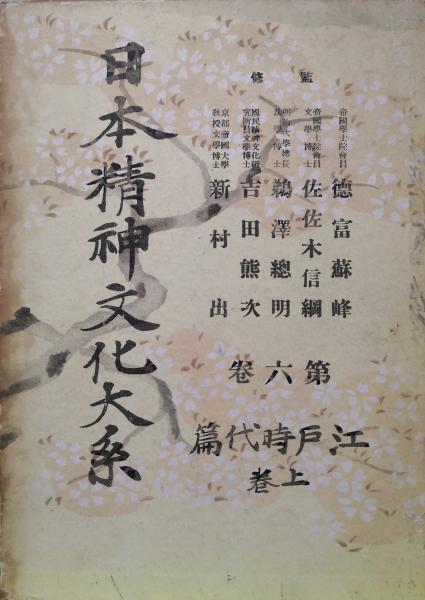 監修
帝國學士院會員
德富蘇峰
帝國學士院會員
文學博士
佐佐木信綱
明治大學總長
法學博士
鵜澤總明
國民精神文化研
究所員文學博士
吉田熊次
京都帝國大學
敎授文學博士
新村出
第六卷
江戸時代篇
上卷
日本精神文化大系